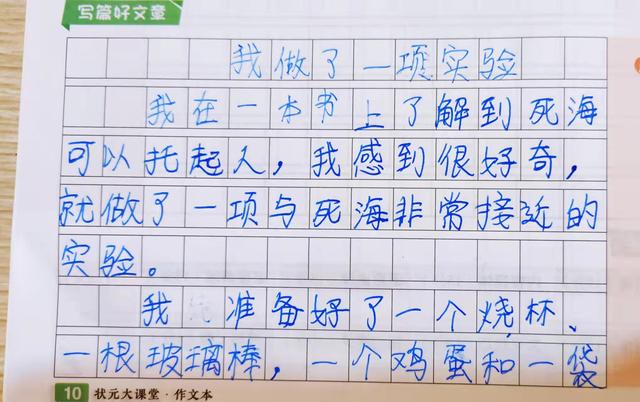 写篇好文章
我做了一项实验
我在一本书上了解到死海
可以托起人，我感到很好奇，
就做了一项与死海非常接近的
实验。
我准备好了一个烧杯、
一根玻璃棒，一个鸡蛋和一袋
10 状元大课堂·作文本